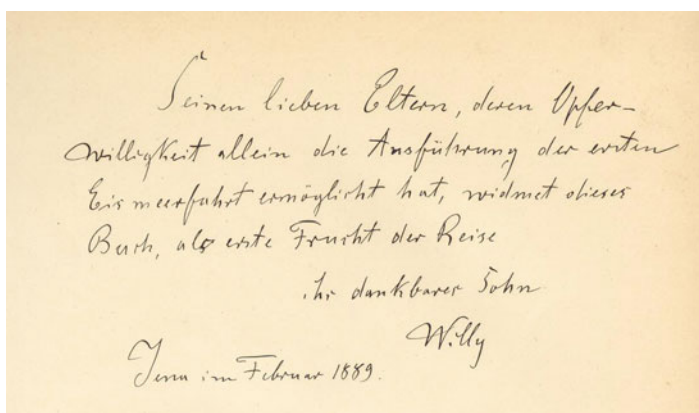 Seinen lieben Eltern, deren Opfer-
willigkeit allein die Ausführung der ersten
Eismeerfahrt ermöglicht hat, widmet dieses
Buch, als erste Frucht der Reise
ihr dankbarer Sohn
Willy
Jena im Februar 1889.